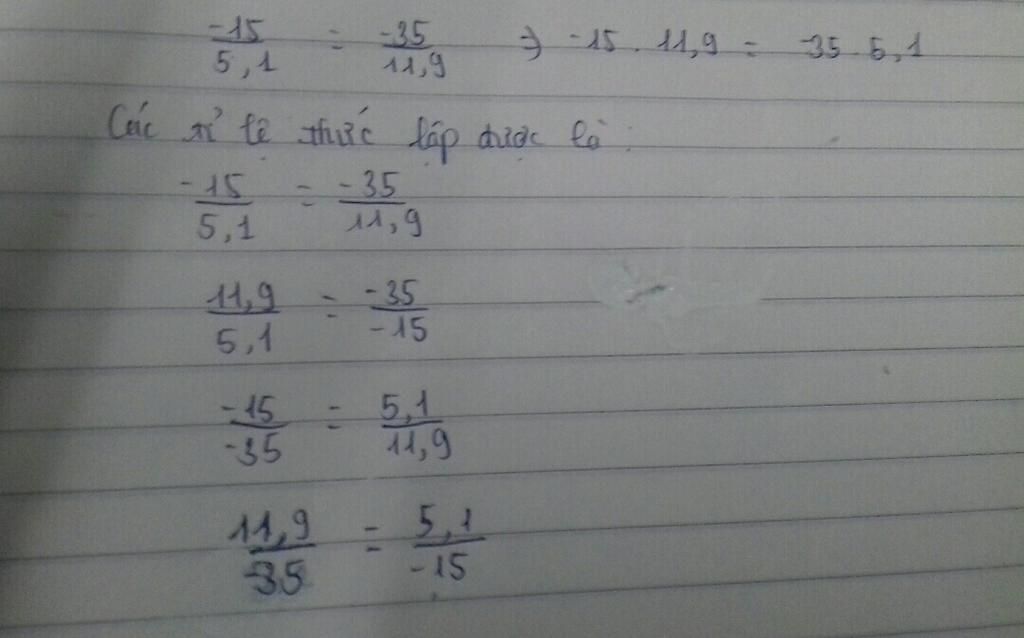 -15/5,1 = -35/11,9 => -15 . 11,9 = -35 . 5,1
Các tỉ lệ thức lập được là :
-15/5,1 = -35/11,9
11,9/5,1 = -35/-15
-15/-35 = 5,1/11,9
11,9/-35 = 5,1/-15